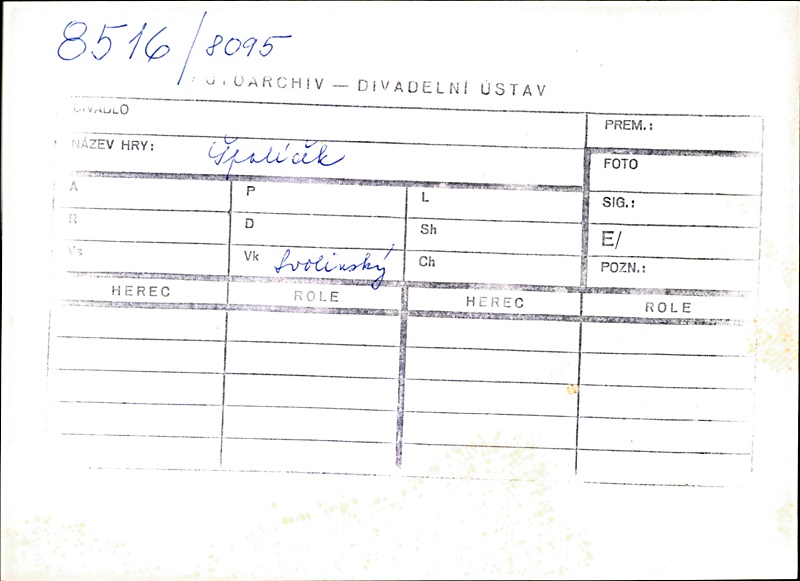 8516/8095
FOTOARCHIV — DIVADELNÍ ÚSTAV
DIVADLO
PREM.:
NÁZEV HRY: Špalíček
FOTO
A P L SIG.:
R D Sh E/
Vs Vk Svolinský Ch POZN.:
HEREC ROLE HEREC ROLE